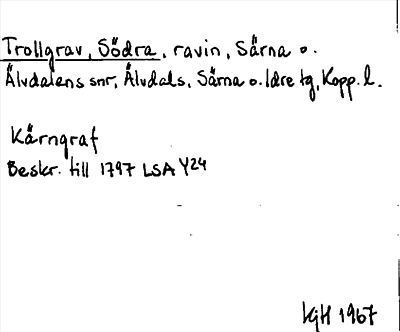 Trollgrav, Södra, ravin, Särna o.
Älvdalens snr, Älvdals, Särna o. Idre tg, Kopp. l.
Kärngraf
Beskr. till 1797 LSA Y24
KgH 1967